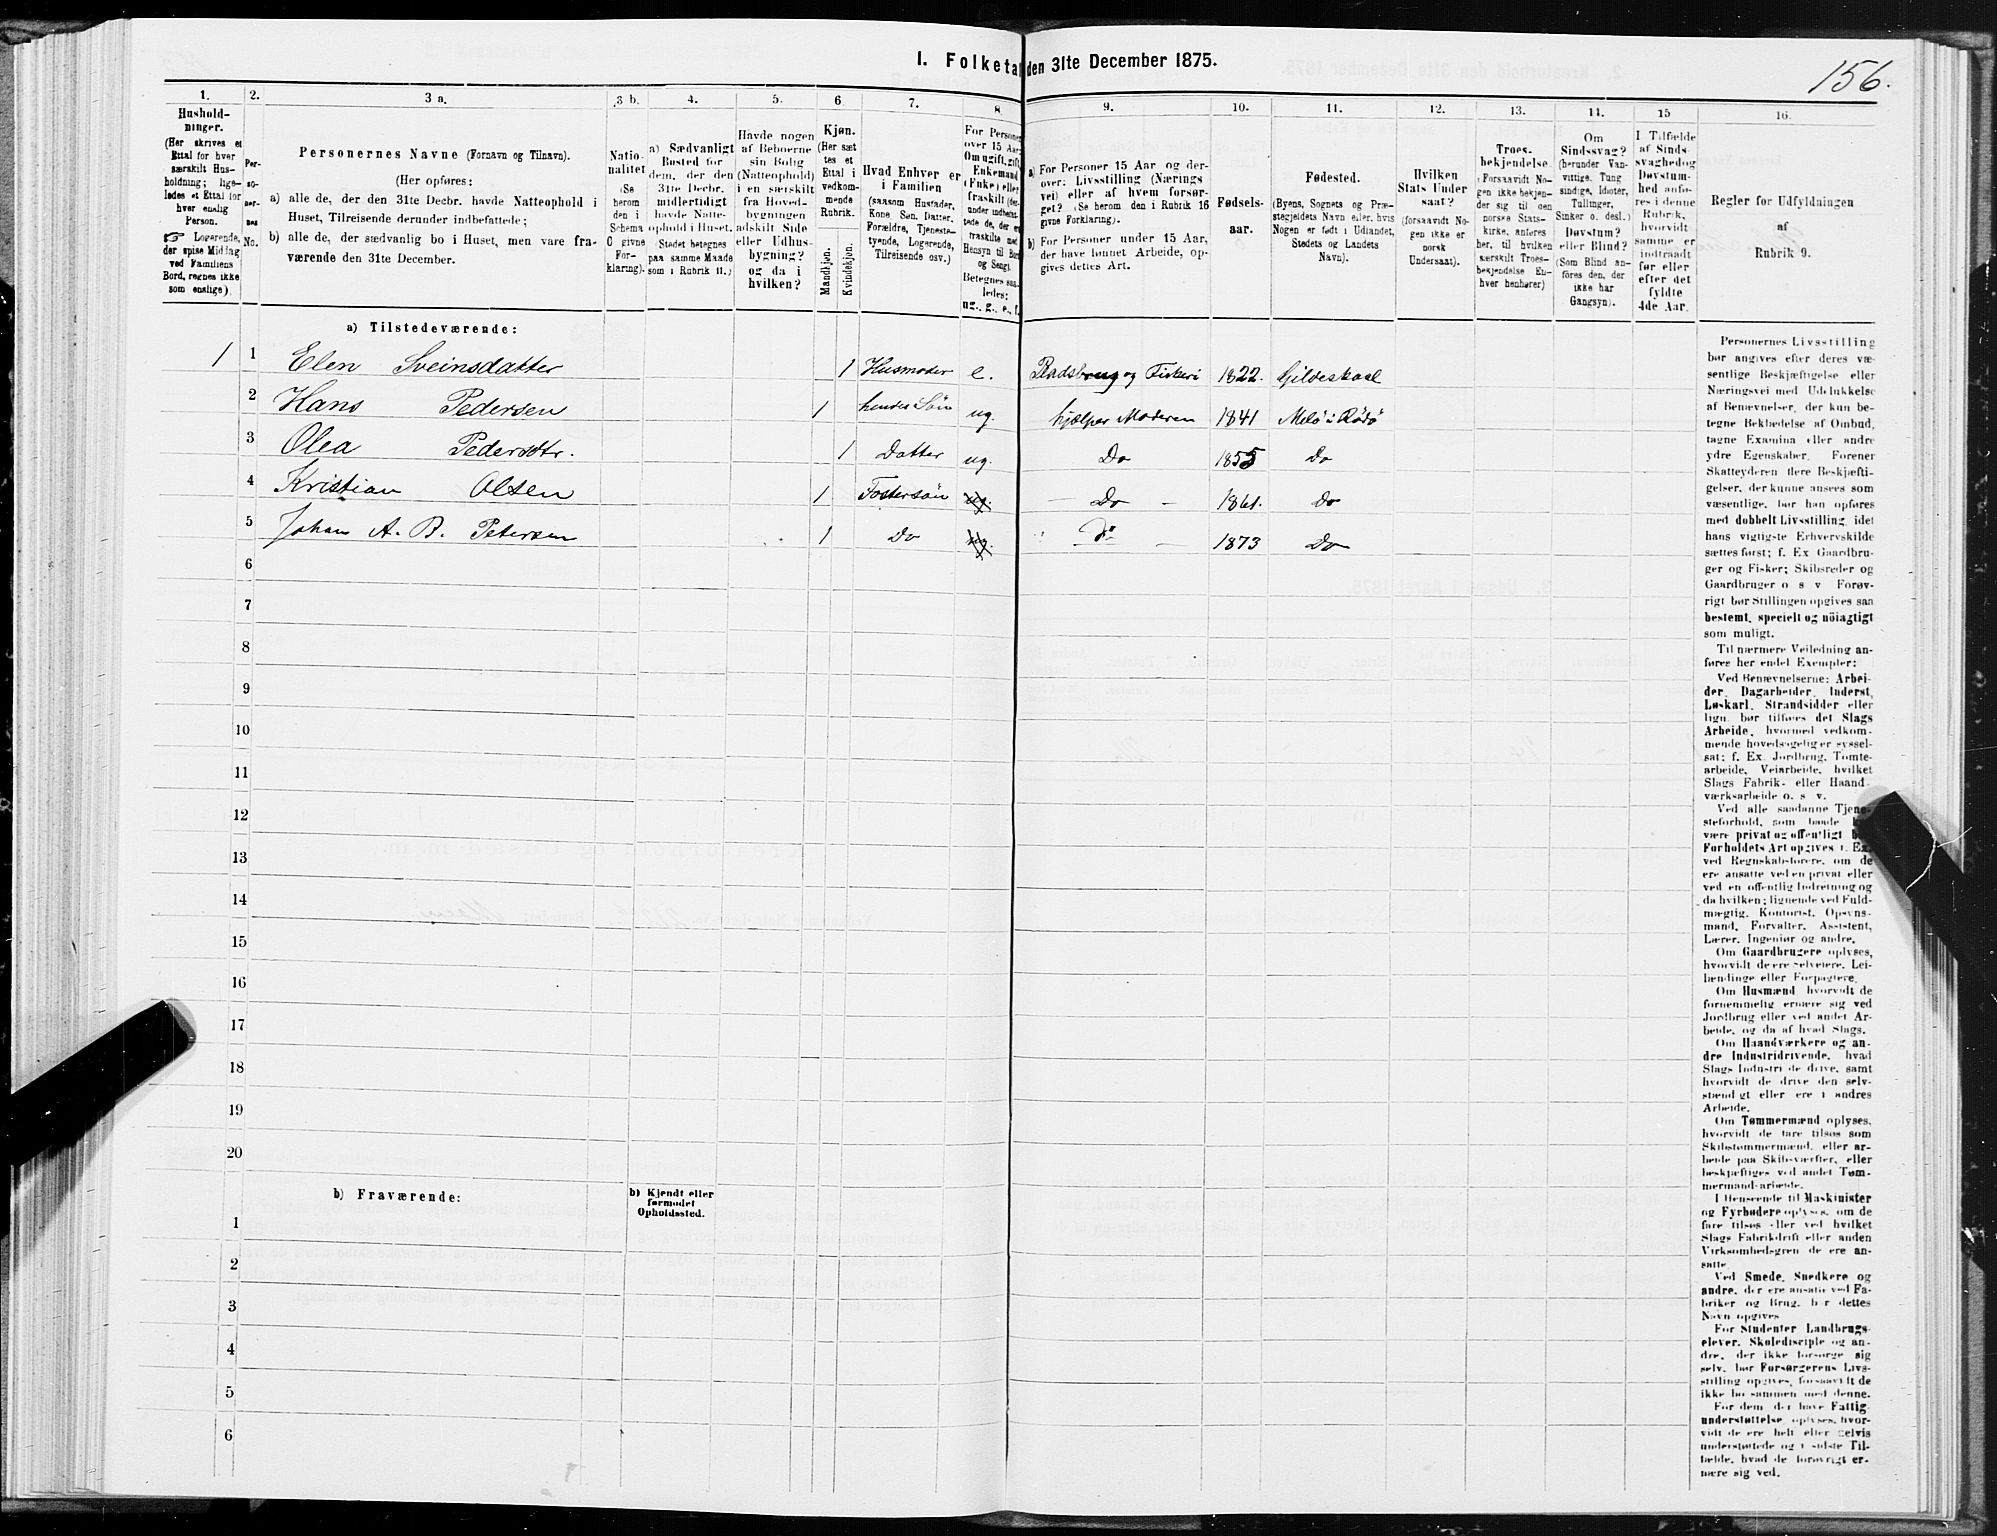 I. Folketal den 31te December 1875.
156.
1. 2. 3 a. 3 b. 4. 5. 6 7. 8. 9. 10. 11. 12. 13. 14. 15 16.
Hushold-
ninger.
(Her skrives et
Ettal for hver
særskilt Hus-
holdning; lige-
ledes et Ettal for
hver enslig
Person.
☞ Logerende,
der spise Middag
ved Familiens
Bord, regnes ikke
som enslige).
Per-
so-
ner-
nes
No.
Personernes Navne (Fornavn og Tilnavn).
(Her opføres:
a) alle de, der den 31te Decbr. havde Natteophold i
Huset, Tilreisende derunder indbefattede;
b) alle de, der sædvanlig bo i Huset, men vare fra-
værende den 31te December.
Natio-
nalitet
(Se
herom
den i
Schema
C givne
For-
klaring).
a) Sædvanligt
Bosted for
dem, der den
31te Decbr.
midlertidigt
havde Natte-
ophold i Huset.
(Stedet betegnes
paa samme Maade
som i Rubrik 11.)
Havde nogen
af Beboerne
sin Bolig
(Natteophold)
i en særskilt
fra Hoved-
bygningen
adskilt Side
eller Udhus-
bygning?
og da i
hvilken?
Kjøn.
(Her sæt
tes et
Ettal i
vedkom-
mende
Rubrik.
Mandkjøn.
Kvindekjøn.
Hvad Enhver er
i Familien
(saasom Husfader,
Kone, Søn, Datter,
Forældre, Tjeneste-
tyende, Logerende,
Tilreisende osv.)
For Personer
over 15 Aar:
Om ugift, gift,
Enkemand
(Enke) eller
fraskilt
Betegnes saa-
ledes:
ug., g., e., f.
a) For Personer 15 Aar og der-
over: Livsstilling (Nærings
vei) eller af hvem forsør-
get? (Se herom den i Rubrik 16
givne Forklaring).
b) For Personer under 15 Aar,
der have lønnet Arbeide, op-
gives dettes Art.
Fødsels-
aar.
Fødested.
(Byens, Sognets og Præ-
stegjeldets Navn eller, hvis
Nogen er født i Udlandet,
Stedets og Landets
Navn).
Hvilken
Stats Under
saat?
(forsaavidt No-
gen ikke er
norsk
Undersaat).
Troes-
bekjendelse.
(Forsaavidt No-
gen ikke bekjen-
der sig til den
norske Stats-
kirke, anføres
her, til hvilken
særskilt Troes-
bekjendelse En-
hver henhører)
Om
Sindssvag?
(herunder Van-
vittige, Tung
sindige, Idioter,
Tullinger,
Sinker o. desl.)
Døvstum?
eller Blind?
(Som Blind an-
føres den, der
ikke har
Gangsyn).
I Tilfælde
af Sinds-
svaghed og
Døvstum-
hed anfø-
res i denne
Rubrik,
hvorvidt
samme er
indtraadt
før eller
efter det
fyldte
4de Aar.
Regler for Udfyldningen
af
Rubrik 9.
a) Tilstedeværende:
1 1 Elen Sveinsdatter 1 Husmoder e. Jordsbrug og Fiskeri 1822. Gildeskaal
2 Hans Pedersen 1 hendes Søn ug. hjælper Moderen 1841 Melø i Rødø
3 Olea Pedersdtr. 1 Datter ug. Do 1855 Do
4 Kristian Olsen 1 Fostersøn ug. Do 1861. Do
5 Johan A. B. Petersen 1 Do ug. Do 1873 Do
6
7
8
9
10
11
12
13
14
15
16
17
18
19
20
b) Fraværende:
b) Kjendt eller
formodet
Opholdssted.
1
2
3
4
5
6
Personernes Livsstilling
bør angives efter deres væ-
sentlige Beskjæftigelse eller
Næringsvei med Udelukkelse
af Benævnelser, der kun be-
tegne Beklædelse af Ombud,
tagne Examina eller andre
ydre Egenskaber. Forener
Skatteyderen flere Beskjæfti-
gelser, der kunne ansees som
væsentlige, bør han opføres
med dobbelt Livsstilling, idet
hans vigtigste Erhvervskilde
sættes først; f. Ex Gaardbru-
ger og Fisker; Skibsreder og
Gaardbruger o s v Forøv-
rigt bør Stillingen opgives saa
bestemt, specielt og nöiagtigt
som muligt.
Til nærmere Veiledning an-
føres her endel Exempler:
Ved Benævnelserne: Arbei-
der, Dagarbeider, Inderst,
Løskarl, Strandsidder eller
lign. bør tilføies det Slags
Arbeide, hvormed vedkom-
mende hovedsagelig er syssel-
sat; f. Ex. Jordbrug, Tomte-
arbeide, Veiarbeide, hvilket
Slags Fabrik- eller Haand-
værksarbeide o. s v.
Ved alle saadanne Tjene-
steforhold, som baade
være privat og offentligt
Forholdets Art opgives f. Ex.
ved Regnskabsførere, om de
ere ansatte ved en privat eller
ved en offentlig Indretning og
da hvilken; lignende ved Fuld-
mægtig, Kontorist, Opsyns-
mand, Forvalter, Assistent,
Lærer, Ingeniør og andre.
Om Gaardbrugere oplyses,
hvorvidt de ere selveiere, Lei-
lændinge eller Forpagtere.
Om Husmænd hvorvidt de
fornemmelig ernære sig ved
Jordbrug eller ved andet Ar-
beide, og da af hvad Slags.
Om Haandværkere og an-
dre Industridrivende, hvad
Slags Industri de drive, samt
hvorvidt de drive den selv-
stændigt eller ere i andres
Arbeide.
Om Tømmermænd oplyses,
hvorvidt de fare tilsøs som
Skibstømmermænd, eller ar-
beide paa Skibsværfter, eller
beskjæftiges ved andet Tøm-
mermandsarbeide.
I Henseende til Maskinister
og Fyrbødere oplyses, om de
fare tilsøs eller ved hvilket
Slags Fabrikdrift eller anden
Virksomhedsgren de ere an-
satte
Ved Smede, Snedkere og
andre, der ere ansatte ved Fa-
briker og Brug, bør dettes
Navn opgives
For Studenter Landbrugs-
elever, Skoledisciple og an-
dre, der ikke forsørge sig
selv, bør Forsørgerens Livs-
stilling opgives, forsaavidt de
ikke bo sammen med denne.
For dem, der have Fattig
understøttelse oplyses, hvor-
vidt de ere helt eller delvis
understøttede og i sidste Til-
fælde, hvad de forøvrigt er-
nære sig ved.